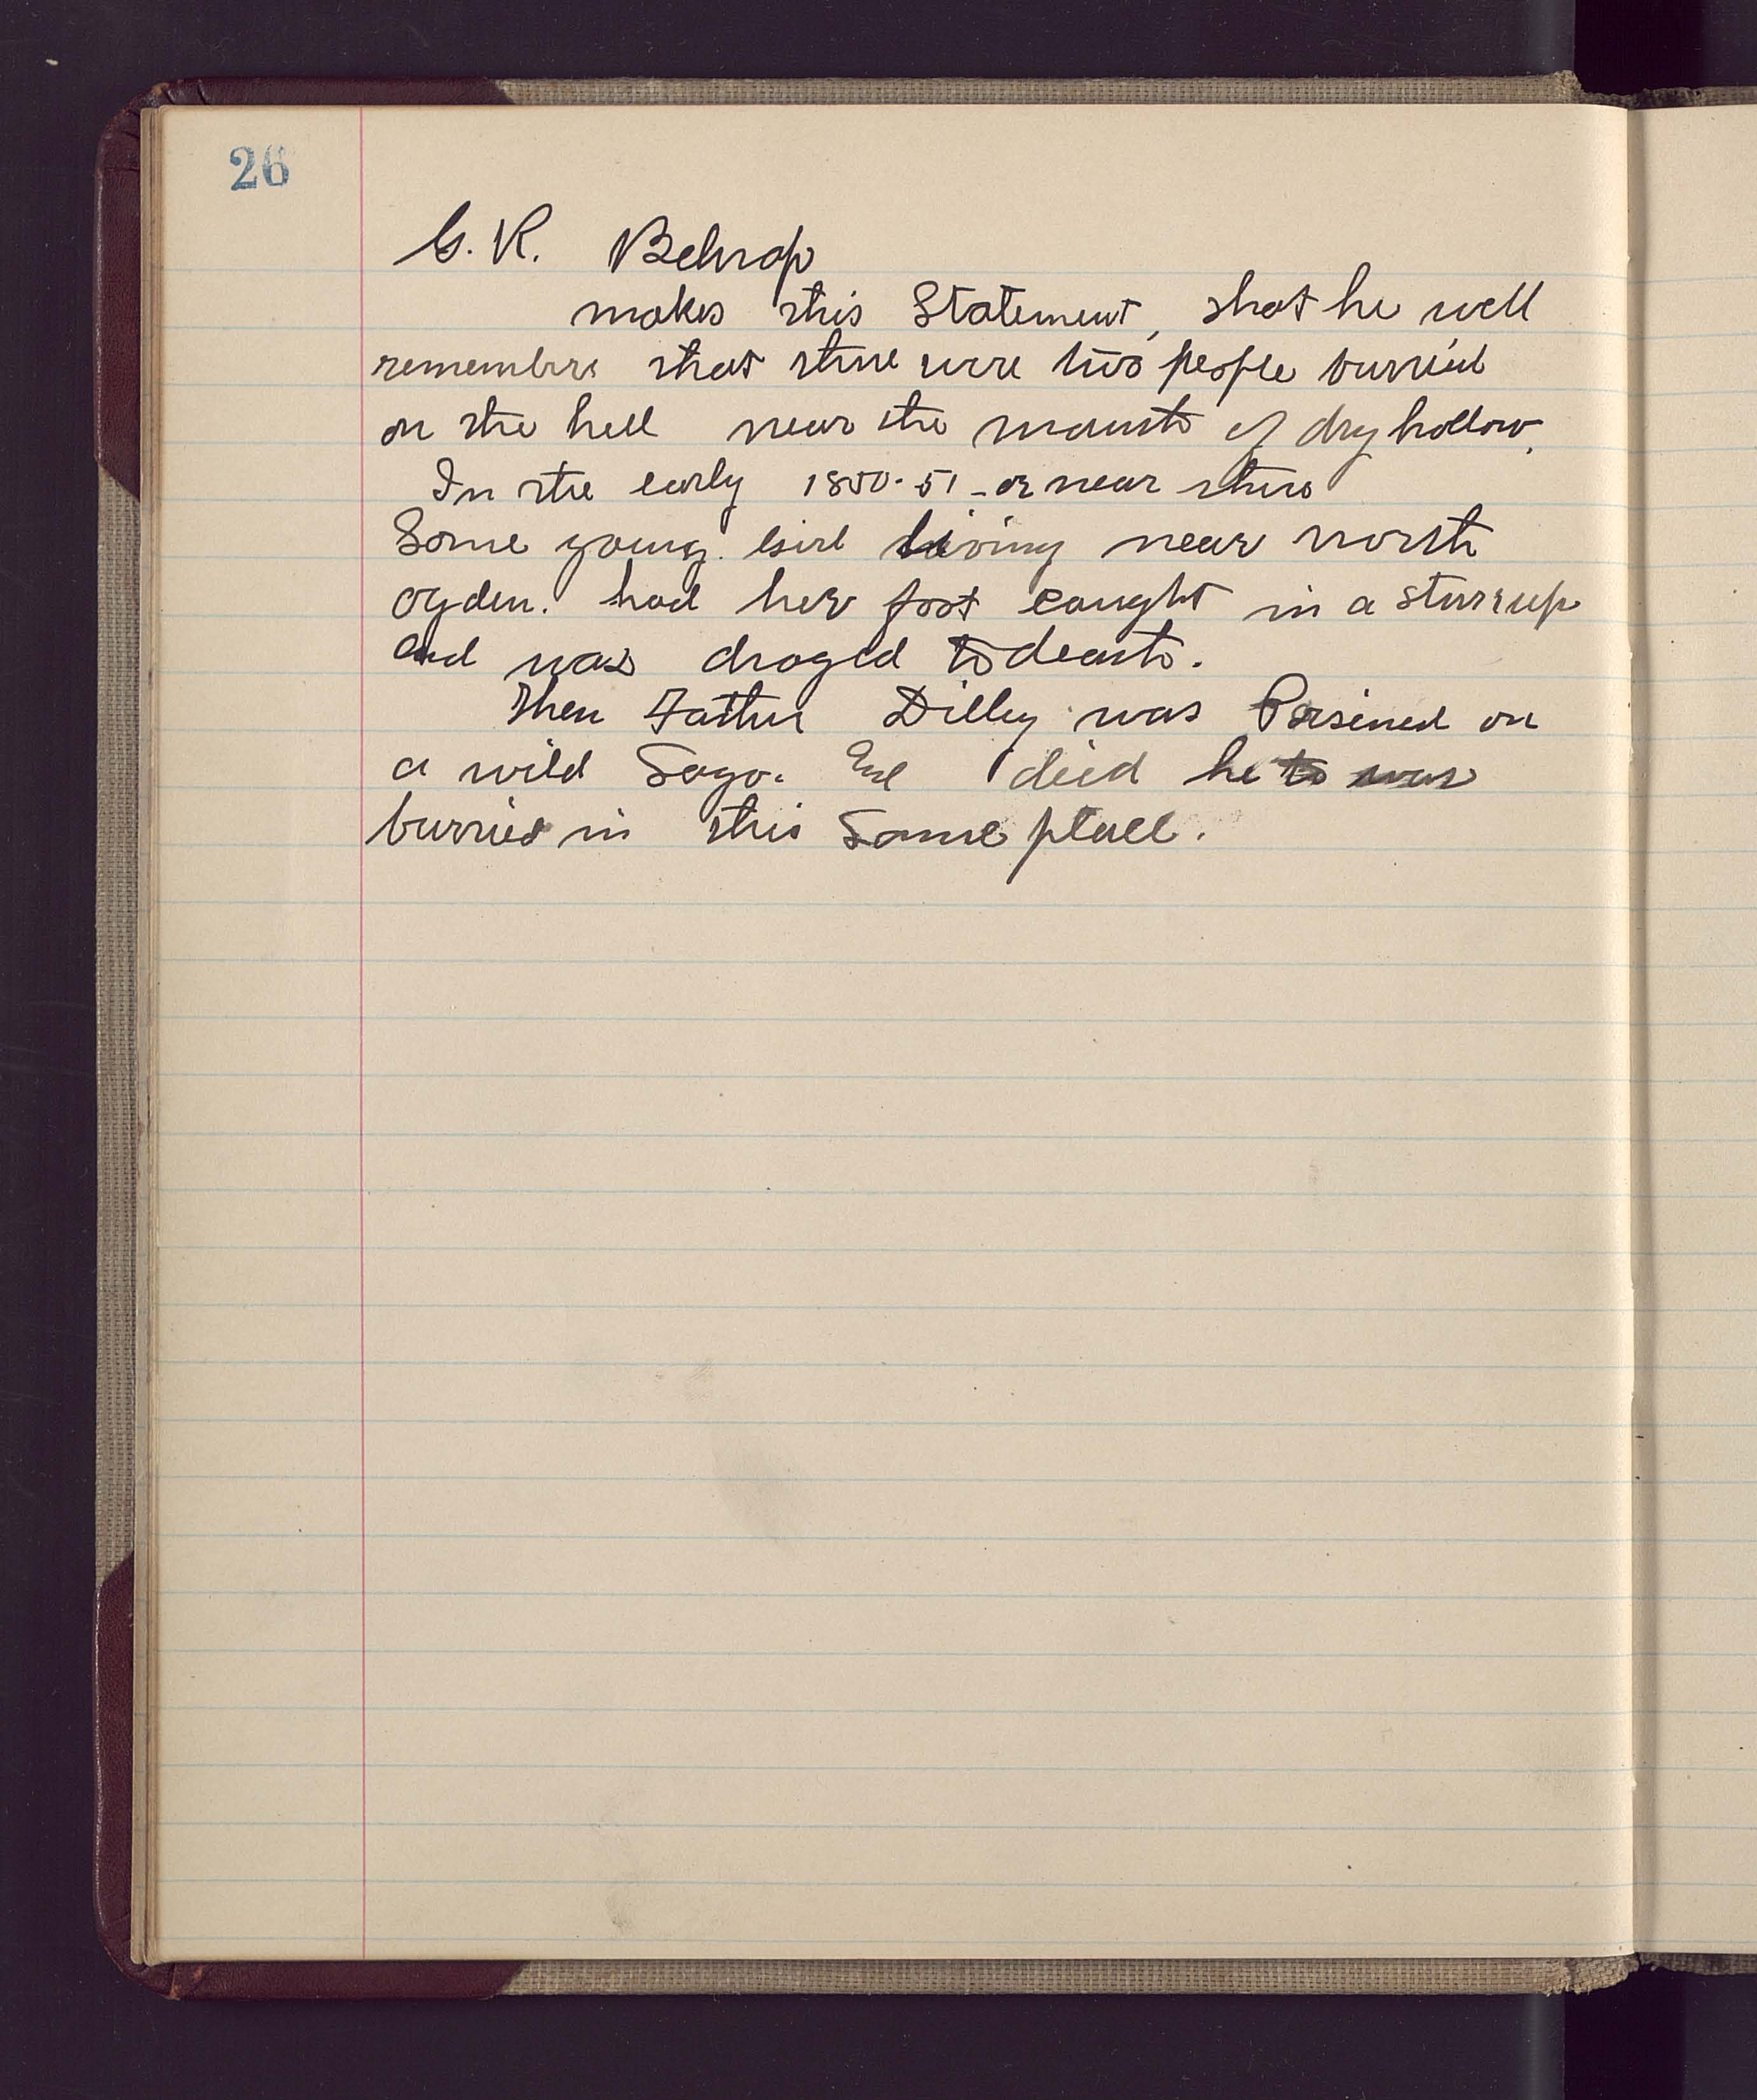 26
G. R. Belnap
makes this Statement, that he well
remembers that there were two people burried
on the hill near the mouth of dry hollow.
In the early 1850-51 - or near there
Some young. Girl living near north
ogden. had her foot caught in a sturrup
and was droged to death.
Then Father Dilley was Poisined on
a wild Sago. and died he to was
burried in this same place.